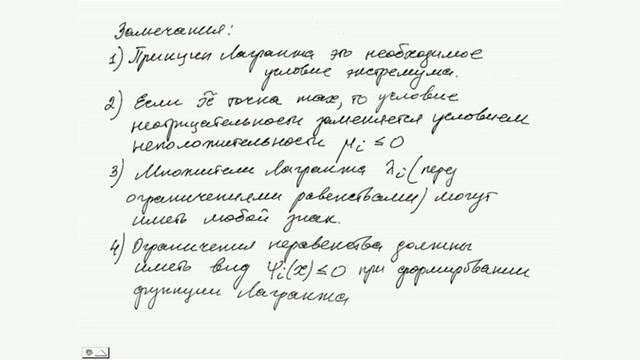 Замечания:
1) Принцип Лагранжа это необходимое
условие экстремума.
2) Если x̂ точка max, то условие
неотрицательности заменяется условием
неположительности μi ≤ 0
3) Множители Лагранжа λi (перед
ограничениями равенствами) могут
иметь любой знак.
4) Ограничения неравенства должны
иметь вид ψi(x) ≤ 0 при формирвании
функции Лагранжа